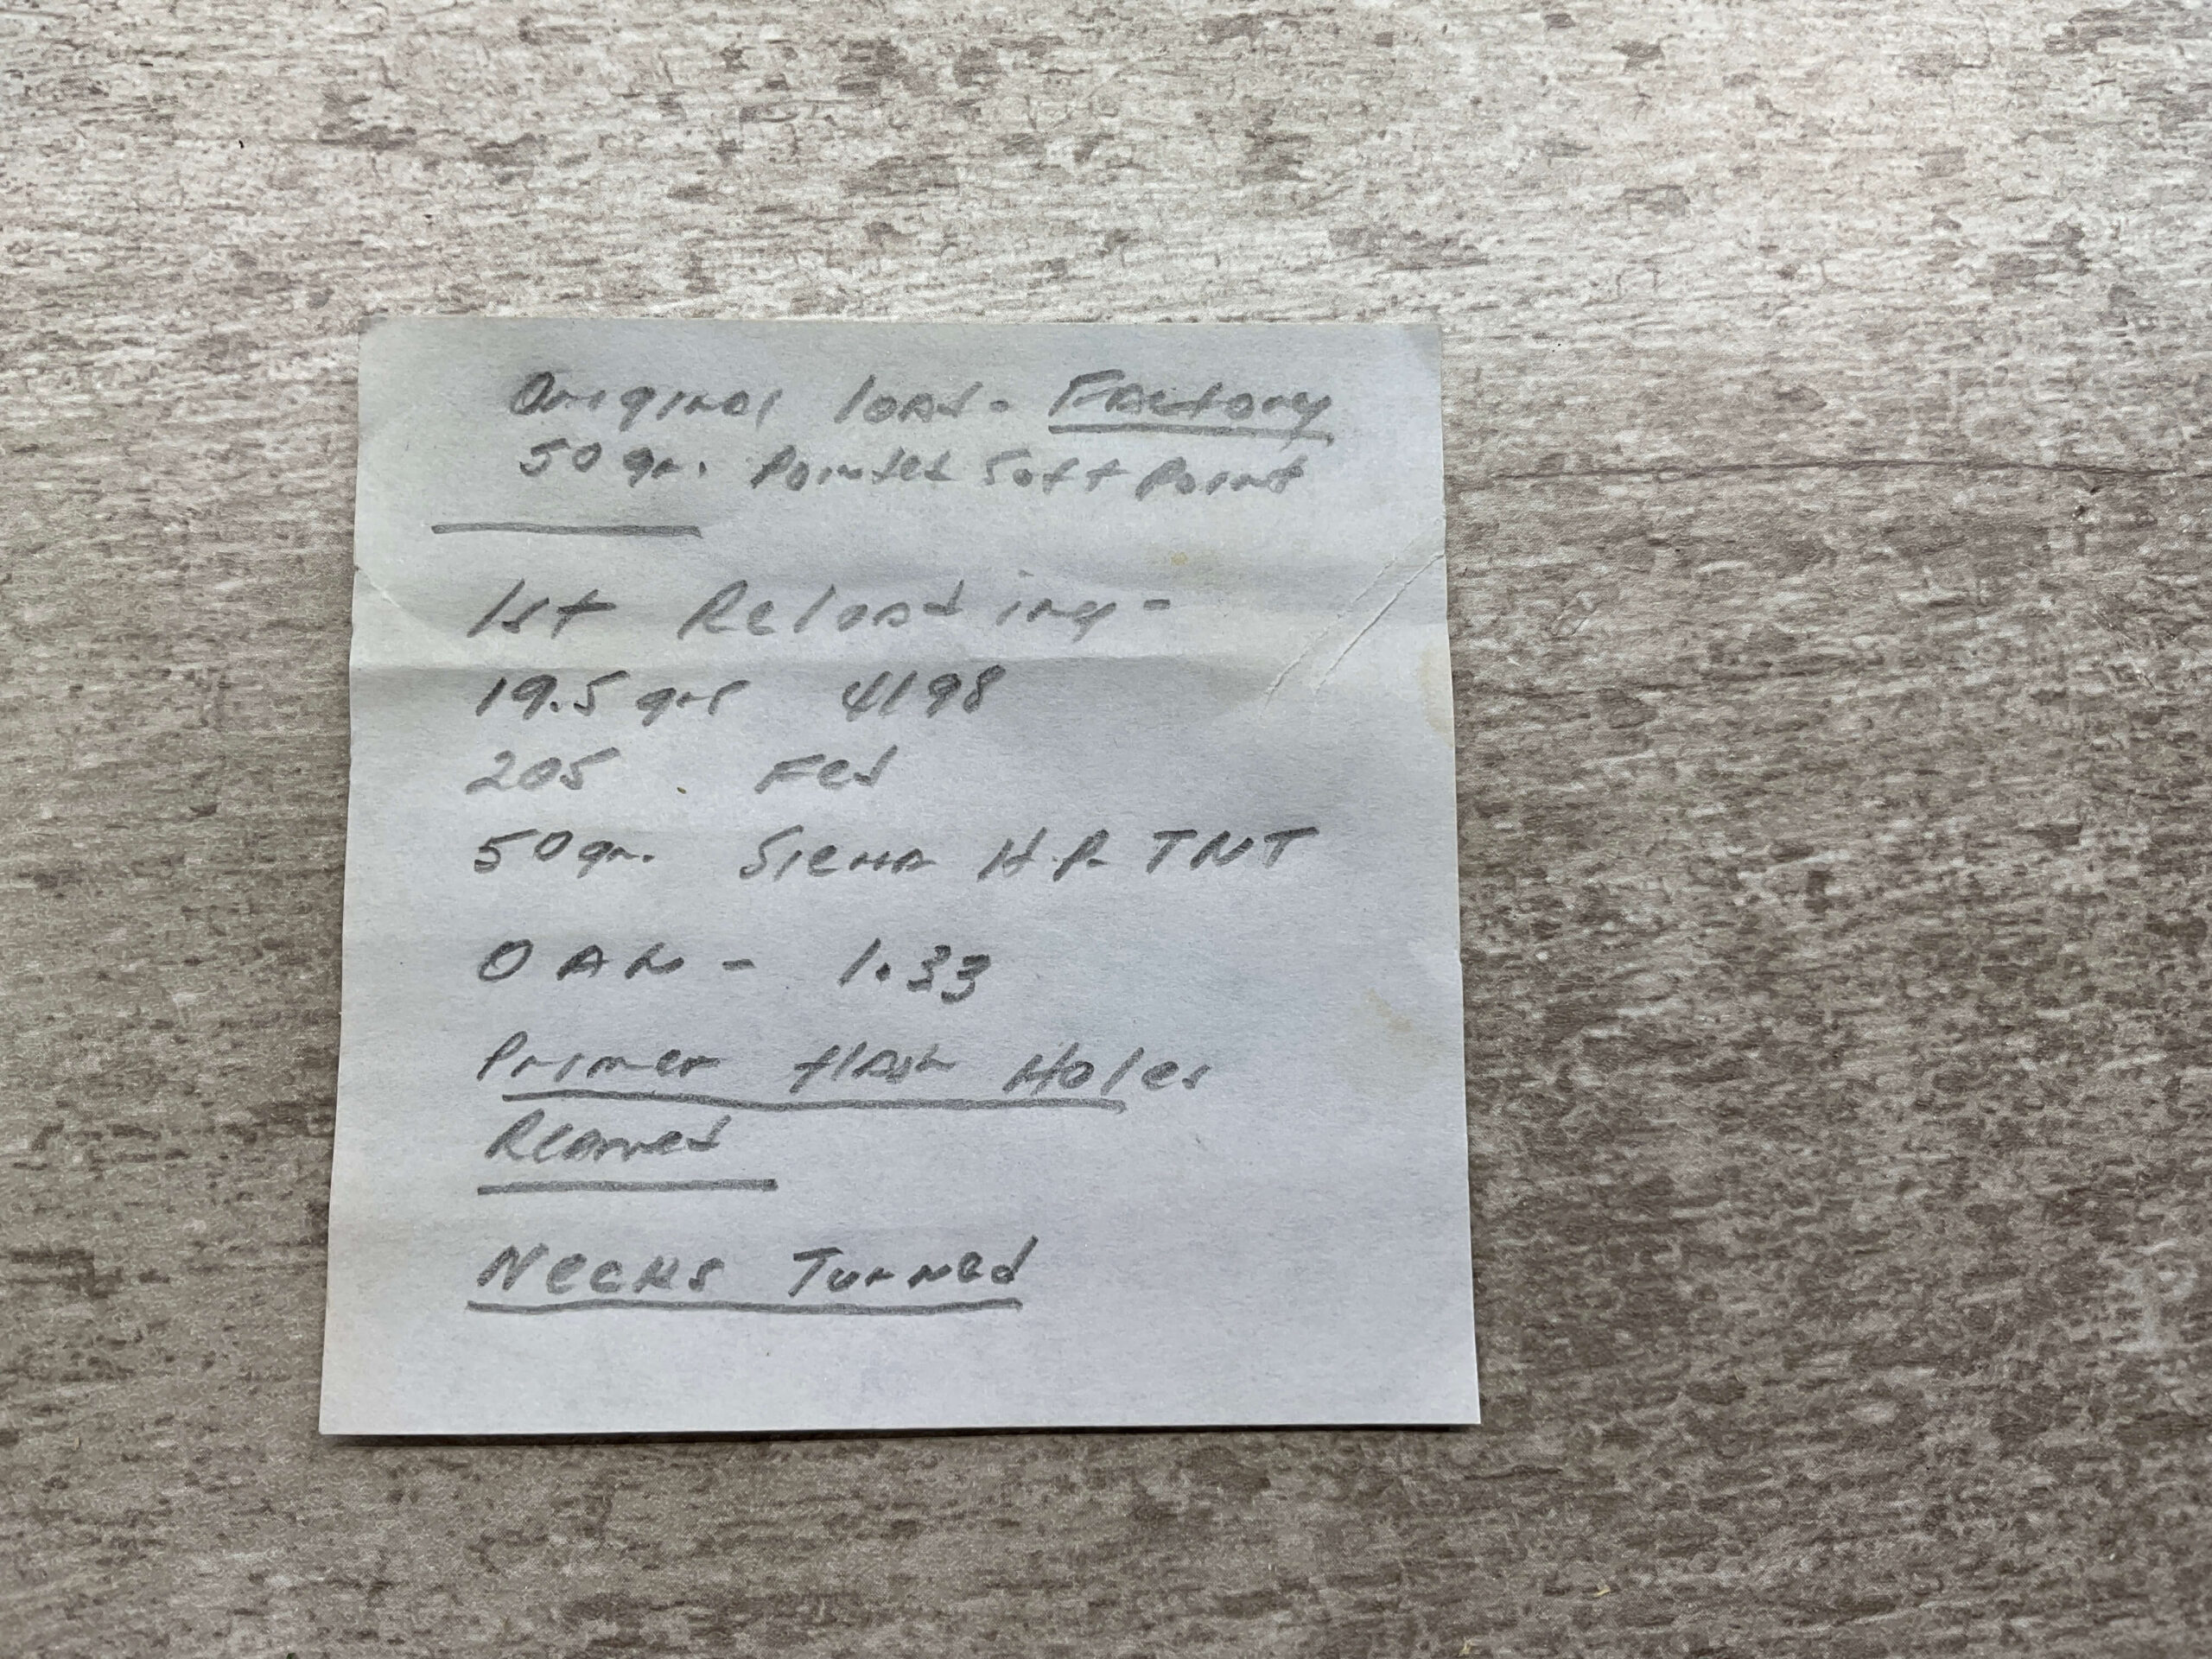 Original load - Factory
50 gr. Pointed Soft Point
1st Reloading -
19.5 grs 4198
205 Fed
50 gr. Sierra H.P. TNT
OAL - 1.33
Primer flash Holes
Reamed
Necks Turned